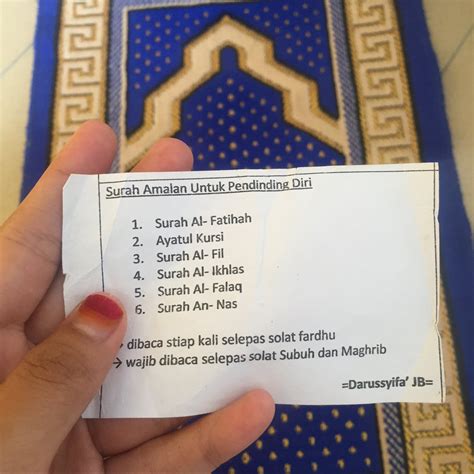 Surah Amalan Untuk Pendinding Diri
1. Surah Al- Fatihah
2. Ayatul Kursi
3. Surah Al- Fil
4. Surah Al- Ikhlas
5. Surah Al- Falaq
6. Surah An- Nas
→ dibaca stiap kali selepas solat fardhu
→ wajib dibaca selepas solat Subuh dan Maghrib
=Darussyifa' JB=